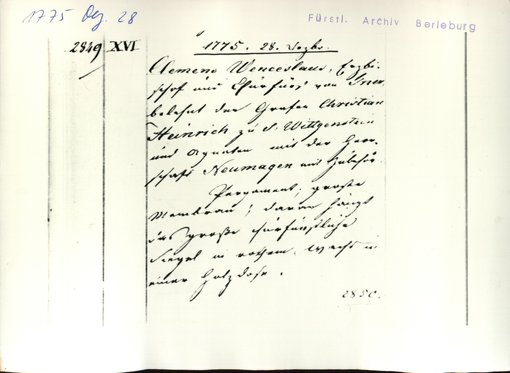 1775 Dez. 28
Fürstl. Archiv Berleburg
2849 XVI
1775. 28. Dezbr.
Clemens Wenceslaus, Erzbi-
schof und Churfürst von Trier
belehnt den Grafen Christian
Heinrich zu S. Wittgenstein
und Agnaten mit der Herr-
schaft Neumagen und Zubehör.
Pergament, große
Membran; daran hängt
das große churfürstliche
Siegel in rothem Wachs in
einer Holzdose.
2850.